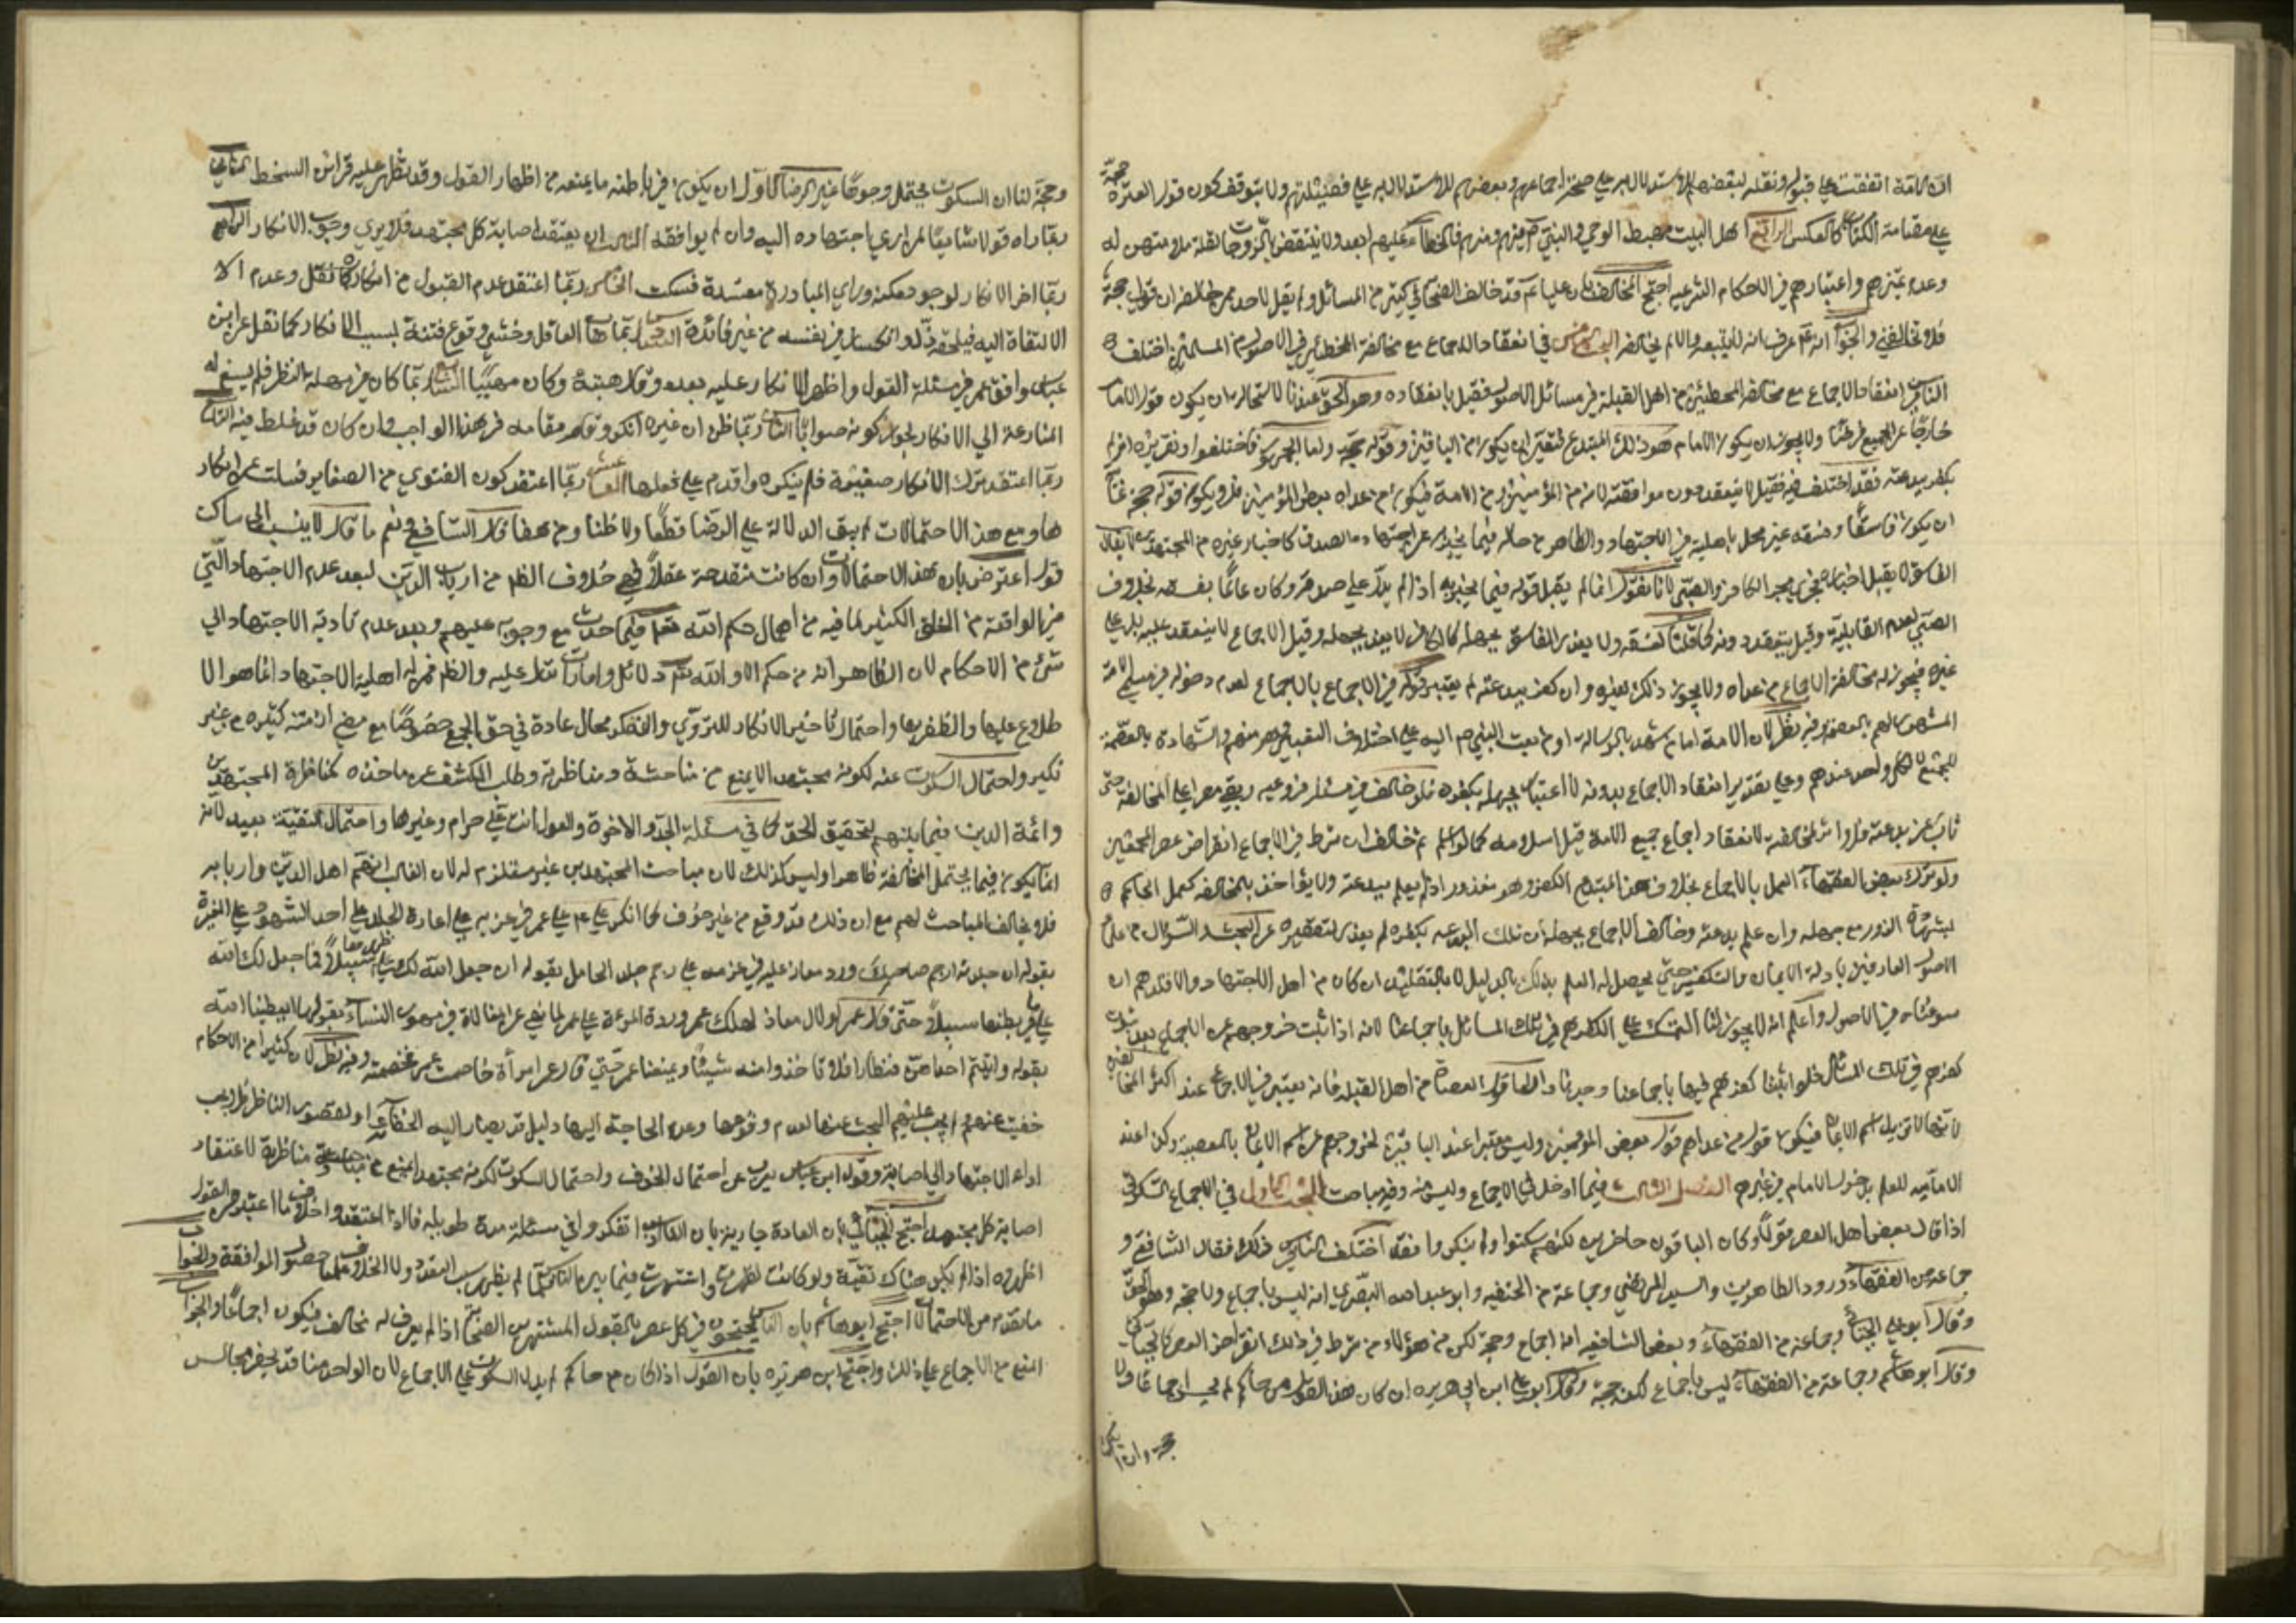 الأمة اتفقت على قبوله ونقله لبعضهم للاستدلال به على صحة اجماعهم وبعضهم للاستدلال به على فضيلتهم ولا يتوقف كون قول العترة حجة
على مقامة الكتاب كالعكس الرابع اهل البيت مهبط الوحي والنبي ص منهم وهم فالخطاء عليهم ابعد ولا ينتقض بالزوجات
وعدم تميزهم واعتبارهم في الاحكام الشرعية احتج المخالف بان عليا ع قد خالف الصحابة في كثير من المسائل ولم يقل لاحد ممن خالفه ان قولي حجة
فلا تخالفني والجواب انه ع عرف انه لا يتبعه والا لم يخالفه البحث الخامس في انعقاد الاجماع مع مخالفة المخطئين في الاصول من المسلمين اختلف
الناس في انعقاد الاجماع مع مخالفة المخطئين من اهل القبلة في مسائل الاصول فقيل بانعقاده وهو الحق عندنا لاستحالة ان يكون قول الامام
خارجا عن الجميع ولا يجوز ان يكون الامام هو ذلك المبتدع فتعين ان يكون من الباقين وقوله حجة واما الجمهور فاختلفوا وتقريره ان لم
يكفر ببدعته فقد اختلف فيه فقيل لا ينعقد دون موافقته لانه من المؤمنين ومن الامة فيكون من عداه بعض المؤمنين فلا يكون قوله حجة
ان يكون فاسقا وفسقه غير مخل باهليته في الاجتهاد والظاهر من حاله فيما يخبر به عن اجتهاده الصدق كاخبار غيره من المجتهدين لا يقال
الفاسق لا يقبل اخباره فجرى مجرى الكافر والصبي لانا نقول انما لم يقبل قوله فيما يخبر به اذا لم يدل على صدقه وكان عالما بفسقه بخلاف
الصبي لعدم القابلية وقيل ينعقد دونه كما قلنا لفسقه ولا يعذر الفاسق بجهله كما ان الكافر لا يعذر بجهله وقيل الاجماع لا ينعقد عليه بل على
غيره فيجوز له مخالفة اجماع من عداه ولا يجوز ذلك لغيره وان كفر ببدعته لم يعتبر قوله في الاجماع بالاجماع لعدم دخوله في مسلمي الامة
المشهود لهم بالعصمة وفيه نظر لان الامة اما من شهد بالرسالة او من بعث النبي ص اليه على اختلاف التفسير والشهادة بالعصمة
للجميع لا لكل واحد عندهم وعلى تقدير انعقاد الاجماع بدونه لا اعتبار بجهله بكفره فلو خالف في مسئلة فروعية وبقي مصرا على المخالفة حتى
تاب عن بدعته فلا اثر لمخالفته لانعقاد اجماع جميع الامة قبل اسلامه كما لو اسلم ثم خالف الا ان شرط في الاجماع انقراض عصر المجمعين
ولو ترك بعض الفقهاء العمل بالاجماع بخلاف هذا المبتدع الكافر وهو معذور اذا لم يعلم ببدعته ولا يؤاخذ بالمخالفة كعمل الحاكم
بشهادة الزور مع جهله وان علم بدعته وخالف الاجماع بجهله ان تلك البدعة يكفره لم يعذر لتقصيره عن البحث والسؤال من علماء
الاصول العارفين بادلة الايمان والتكفير حتى يحصل له العلم بذلك بالدليل لا بالتقليد ان كان من اهل الاجتهاد والا قلدهم ان
سوغناه في الاصول واعلم انه لا يجوز لنا التمسك على الكفرهم في تلك المسائل باجماعنا لانه اذا ثبت خروجهم عن الاجماع بعد ثبوت
كفرهم في تلك المسائل فلو اثبتنا كفرهم فيها باجماعنا وحدنا دار اما قول العصاة من اهل القبلة فانه يعتبر في الاجماع عند اكثر المخالفين
لانها لا تزيل اسم الايمان فيكون قول من عداهم قول بعض المؤمنين وليس معتبرا عند الباقين لخروجهم عن اسم الايمان بالمعصية وكذا عند
الامامية للعلم بدخول الامام في غيرهم الفصل الثالث فيما ادخل في الاجماع وليس منه وفيه مباحث البحث الاول في الاجماع السكوتي
اذا قال بعض اهل العصر قولا وكان الباقون حاضرين لكنهم سكتوا ولم ينكروا فقد اختلف الناس في ذلك فقال الشافعي و
جماعة من الفقهاء وداود الظاهري والسيد المرتضى وجماعة من الحنفية وابو عبد الله البصري انه ليس باجماع ولا حجة وهو الحق
وقال ابو علي الجبائي وجماعة من الفقهاء وبعض الشافعية انه اجماع وحجة لكن من هؤلاء من شرط في ذلك انقراض العصر كالجبائي
وقال ابو هاشم وجماعة من الفقهاء ليس باجماع لكنه حجة وقال ابو علي ابن ابي هريرة ان كان هذا القول من حاكم لم يكن اجماعا ولا
حجة وان لم يكن
وحجة لنا ان السكوت يحتمل وجوها غير الرضا الاول ان يكون في باطنه ما يمنعه من اظهار القول وقد يظهر عليه قرائن السخط الثاني
ربما راه قولا سائغا لمن ادى اجتهاده اليه وان لم يوافقه الثالث ان يعتقد اصابة كل مجتهد فلا يرى وجوب الانكار الرابع
ربما اخر الانكار لوجود مكنه وراى المبادرة مفسدة فسكت الخامس ربما اعتقد عدم القبول من انكاره كما نقل وعدم الا
الالتفات اليه فيلحقه ذل وانكسار في نفسه من غير فائدة السادس ربما هاب القائل وخشي وقوع فتنة بسبب الانكار كما نقل عن ابن
عباس وافق عمر في مسئلة العول واظهر الانكار عليه بعده وقال هبته وكان مهيبا السابع ربما كان في مهلة النظر فلم يسغ له
المسارعة الى الانكار لجواز كونه صوابا الثامن ربما ظن ان غيره انكر وقام مقامه في هذا الواجب وان كان قد غلط فيه التاسع
ربما اعتقد ترك الانكار صغيرة فلم ينكره واقدم على فعلها العاشر ربما اعتقد كون الفتوى من الصغاير فسكت عن انكار
ها ومع هذه الاحتمالات لم يبق الدلالة على الرضا قطعا ولا ظنا ومن هنا قال الشافعي ونعم ما قال لا ينسب الى ساكت
قول اعترض بان هذه الاحتمالات وان كانت منقدحة عقلا فهي خلاف الظاهر من ارباب الدين لبعد عدم الاجتهاد التي
في الواقعة من الخلق الكثير لما فيه من اهمال حكم الله تعالى فيما حدث مع وجوبه عليهم وبعد عدم تأدية الاجتهاد الى
شئ من الاحكام لان الظاهر انه ما من حكم الا ولله تعالى دلائل وامارات تدل عليه والظاهر ممن له اهلية الاجتهاد انما هو الا
طلاع عليها والظفر بها واحتمال تأخير الانكار للتروي والتفكر محال عادة في حق الجمع خصوصا مع مضي ازمنة كثيرة من غير
نكير واحتمال السكوت عنه لكونه مجتهدا لا يمنع من مباحثة ومناظرته وطلب الكشف عن مأخذه كمناظرة المجتهدين
وائمة الدين فيما بينهم لتحقيق الحق كما في مسئلة الجد والاخوة والعول وانت علي حرام وغيرها واحتمال التقية بعيد لانه
انما يكون فيما يحتمل المخالفة ظاهرا وليس كذلك لان مباحث المجتهدين غير مستلزم له لان الغالب انهم اهل الدين واربابه
فلا يخاف المباحث لهم مع ان ذلك قد وقع من غير خوف كما انكر علي ع على عمر في عزمه على اعادة الجلد على احد الشهود على المغيرة
بقوله ان جلدته ارجم صاحبك ورد معاذ عليه في عزمه على رجم جلد الحامل بقوله ان جعل الله لك على ظهرها سبيلا فما جعل لك الله
على ما في بطنها سبيلا حتى قال عمر لولا معاذ لهلك عمر وردة المرءة على عمر لما نهى عن المغالاة في مهور النساء بقولها ايعطينا الله
بقوله واتيتم احداهن قنطارا فلا تأخذوا منه شيئا ويمنعنا عمر حتى قال عمر امرأة خاصمت عمر فخصمته وفيه نظر لان كثيرا من الاحكام
خفيت عنهم ولم يجب عليهم البحث عنها لعدم وقوعها وعدم الحاجة اليها
اداء الاجتهاد الى اصابته وقول ابن عباس يعرب عن احتمال الخوف واحتمال السكوت لكونه مجتهدا يمنع من مباحثة مناظرته لاعتقاد
اصابة كل مجتهد احتج الجبائي بان العادة جارية بان الناس اذا تفكروا في مسئلة مدة طويلة فاذا اعتقدوا خلاف ما اعتبره من القول
اظهروه اذا لم يكن هناك تقية ولو كانت لظهرت واشتهرت فيما بين الناس فلما لم يظهر سبب التقية ولا الخلاف علمنا حصول الموافقة والجواب
ما تقدم من الاحتمال احتج ابو هاشم بان الناس يحتجون في كل عصر بالقول المشتهر من الصحابة اذا لم يعرف له مخالف فيكون اجماعا والجواب
المنع من الاجماع على ذلك واحتج ابن هريرة بان القول اذا كان من حاكم لم يدل السكوت على الاجماع لان الواحد منا قد يحضر مجالس